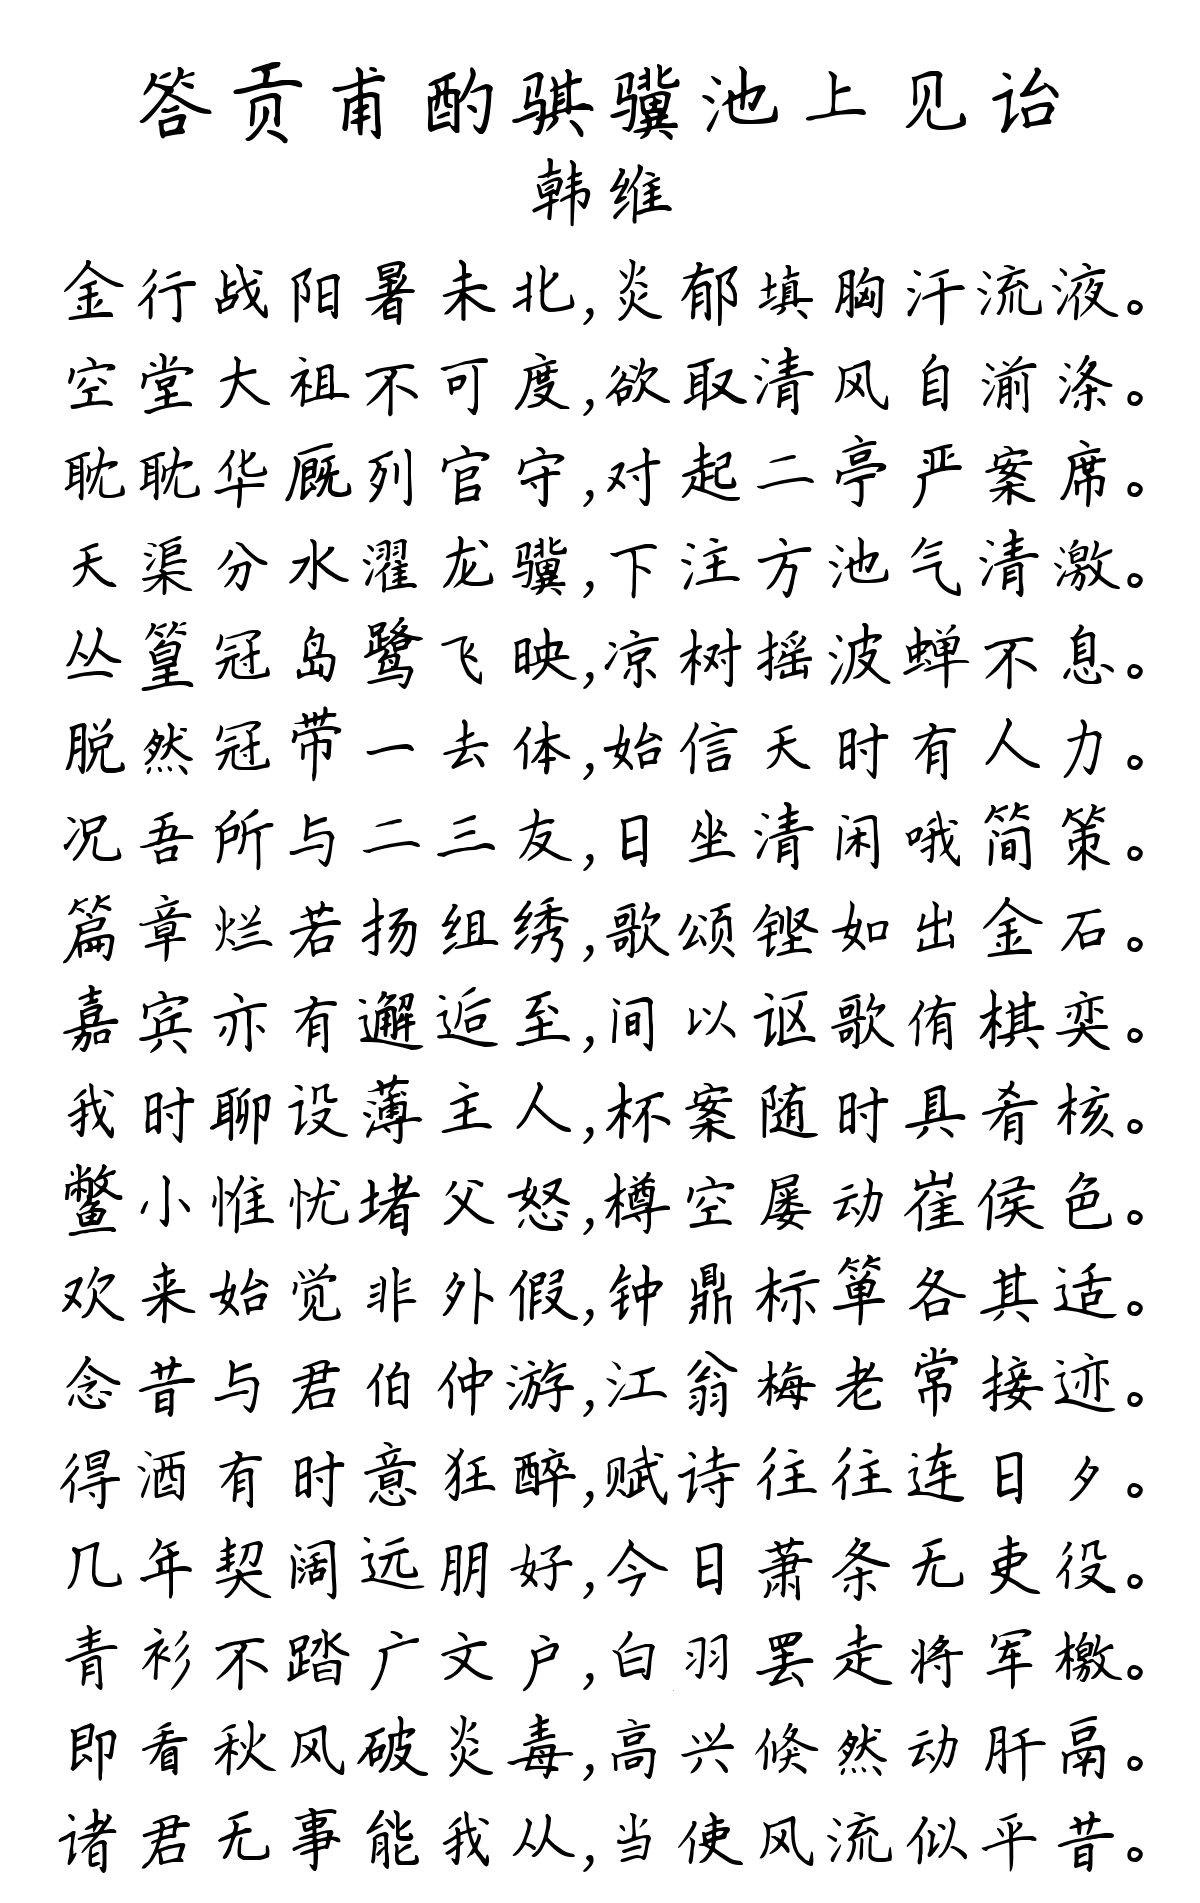 答贡甫酌骐骥池上见诒
韩维
金行战阳暑未北,炎郁填胸汗流液。
空堂大祖不可度,欲取清风自湔涤。
耽耽华厩列官守,对起二亭严案席。
天渠分水濯龙骥,下注方池气清激。
丛篁冠岛鹭飞映,凉树摇波蝉不息。
脱然冠带一去体,始信天时有人力。
况吾所与二三友,日坐清闲哦简策。
篇章烂若扬组绣,歌颂铿如出金石。
嘉宾亦有邂逅至,间以讴歌侑棋奕。
我时聊设薄主人,杯案随时具肴核。
鳖小惟忧堵父怒,樽空屡动崔侯色。
欢来始觉非外假,钟鼎标箪各其适。
念昔与君伯仲游,江翁梅老常接迹。
得酒有时意狂醉,赋诗往往连日夕。
几年契阔远朋好,今日萧条无吏役。
青衫不踏广文户,白羽罢走将军檄。
即看秋风破炎毒,高兴倏然动肝鬲。
诸君无事能我从,当使风流似平昔。